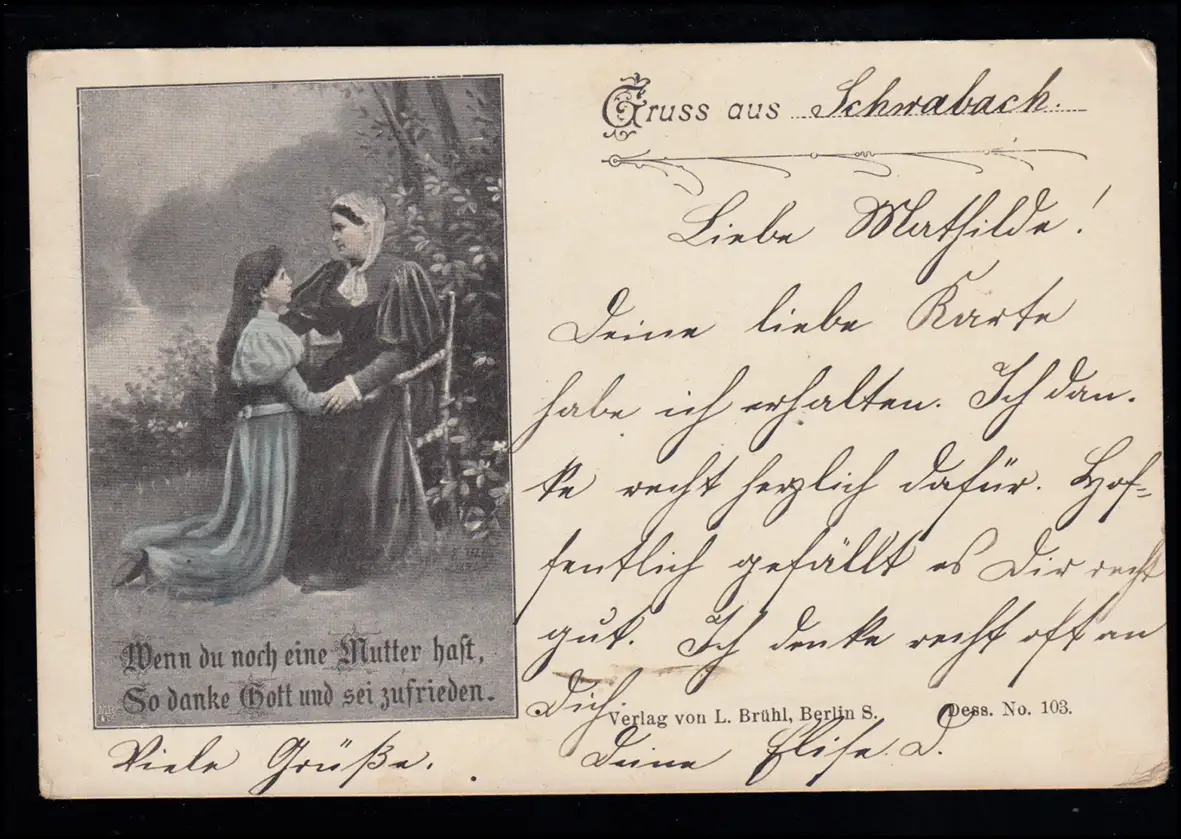 Gruss aus Schwabach.
Liebe Mathilde!
Deine liebe Karte
habe ich erhalten. Ich dan-
ke recht herzlich dafür. Hof-
fentlich gefällt es Dir recht
gut. Ich denke recht oft an
Dich.
Wenn du noch eine Mutter hast,
So danke Gott und sei zufrieden.
Verlag von L. Brühl, Berlin S.
Dess. No. 103.
Viele Grüße.
Deine Elise. D.